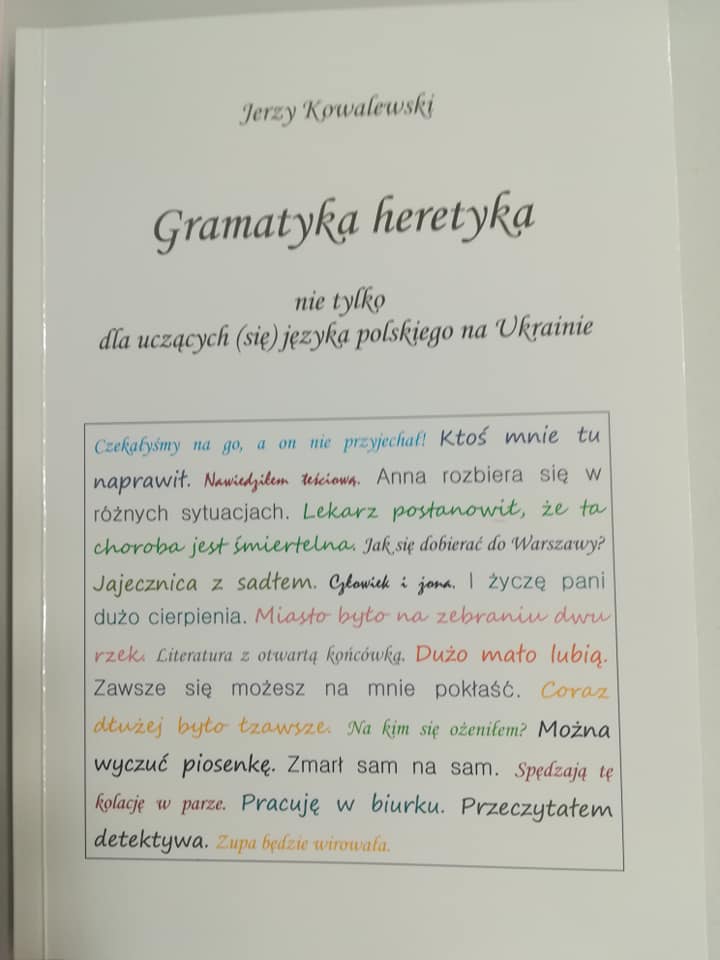 Jerzy Kowalewski
Gramatyka heretyka
nie tylko
dla uczących (się) języka polskiego na Ukrainie
Czekałyśmy na go, a on nie przyjechał! Ktoś mnie tu
naprawił. Nawiedziłem teściową. Anna rozbiera się w
różnych sytuacjach. Lekarz postanowił, że ta
choroba jest śmiertelna. Jak się dobierać do Warszawy?
Jajecznica z sadłem. Człowiek i jona. I życzę pani
dużo cierpienia. Miasto było na zebraniu dwu
rzek. Literatura z otwartą końcówką. Dużo mało lubią.
Zawsze się możesz na mnie pokłaść. Coraz
dłużej było tzawsze. Na kim się ożeniłem? Można
wyczuć piosenkę. Zmarł sam na sam. Spędzają tę
kolację w parze. Pracuję w biurku. Przeczytałem
detektywa. Zupa będzie wirowała.